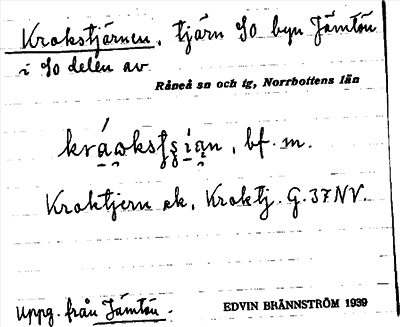 Krokstjärnen, tjärn SO byn Jämtön
i SO delen av
Råneå sn och tg, Norrbottens län
bf. m.
Kroktjern ek, Kroktj. G. 37 NV.
Uppg. från Jämtön.
EDVIN BRÄNNSTRÖM 1939